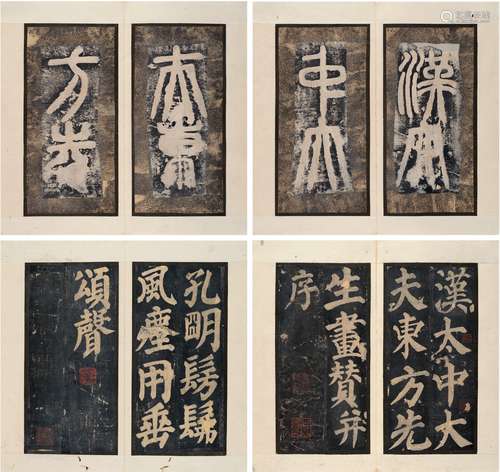 漢太
中大
夫東
方先
漢太中大
夫東方先
生畫贊并
序
孔明髣髴
風塵用垂
頌聲